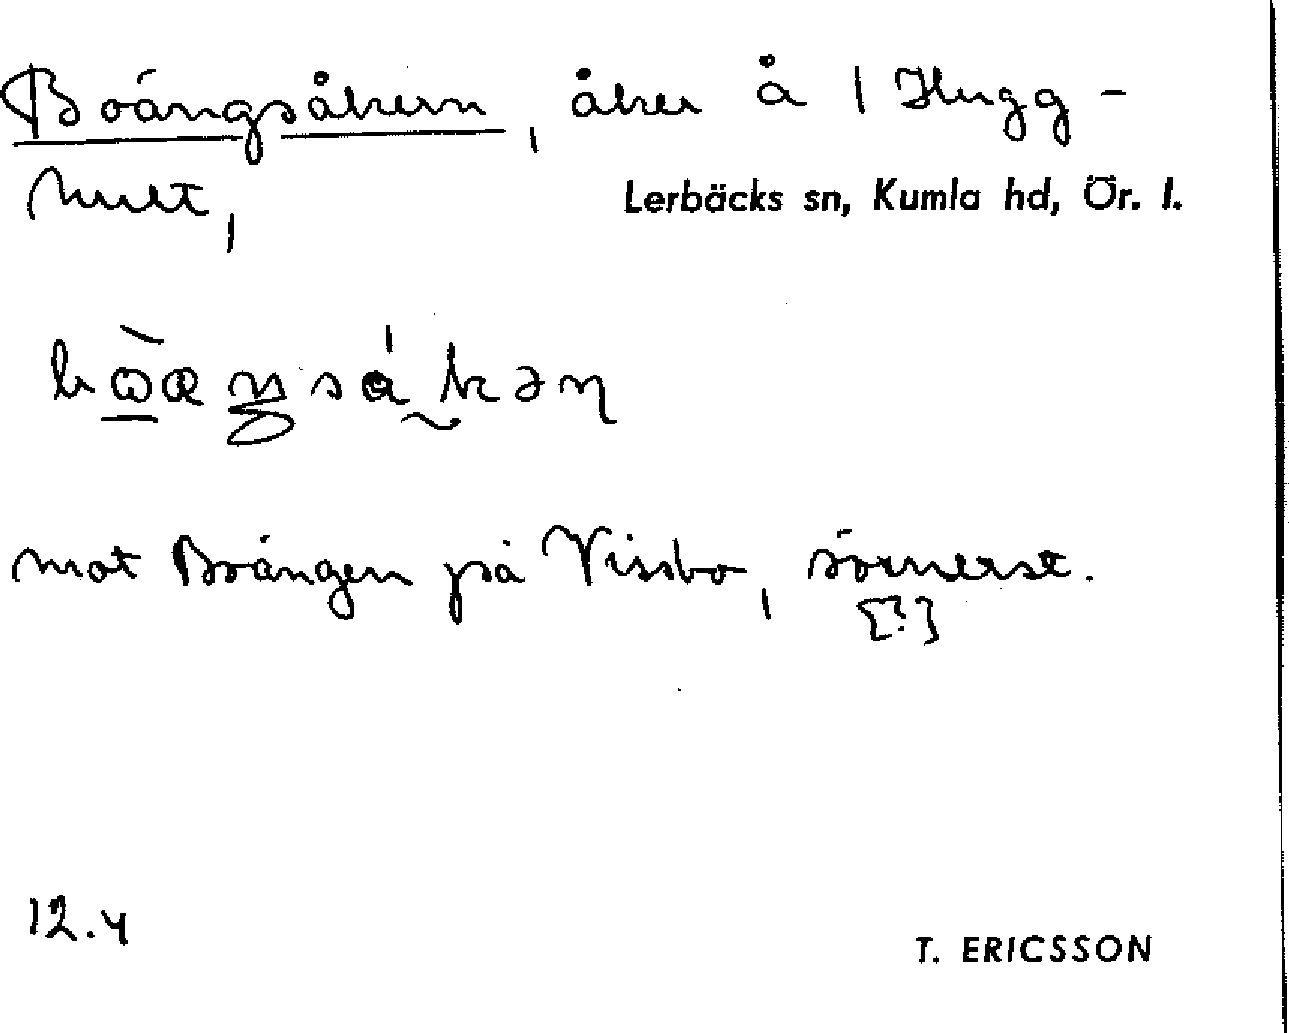 Boängsåkern, åker å 1 Hugg-
hult,
Lerbäcks sn, Kumla hd, Ör. l.
mot Boängen på Vissbo, sörnerst.
[?]
12.4
T. ERICSSON